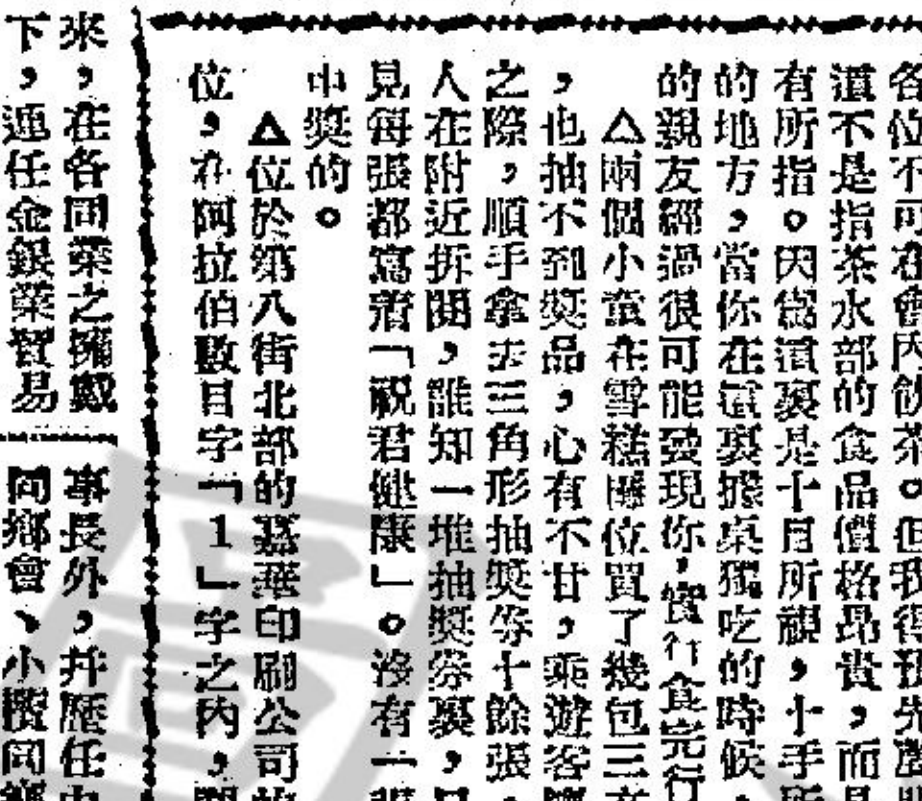 各位不可在會因飲茶。但我得預先聲明
這不是指茶水部的食品價格昂貴,而是
有所指。因為這裏是十目所視,十手所
的地方,當你在這裏據桌獨吃的時候,
的親友經過很可能發現你,實行食完行
△兩個小童在雪糕攤位買了幾包三
,也抽不到獎品,心有不甘,乘遊客
之際,順手拿去三角形抽獎券十餘張,
人在附近拆開,誰知一堆抽獎券裏,只
見每張都寫着「祝君健康」。沒有一張
中獎的。
△位於第八街北部的嘉華印刷公司的
位,在阿拉伯數目字「1」字之內,
來,在各同業之擁戴
下,連任金銀業貿易
事長外,并歷任中
同鄉會、小欖同鄉